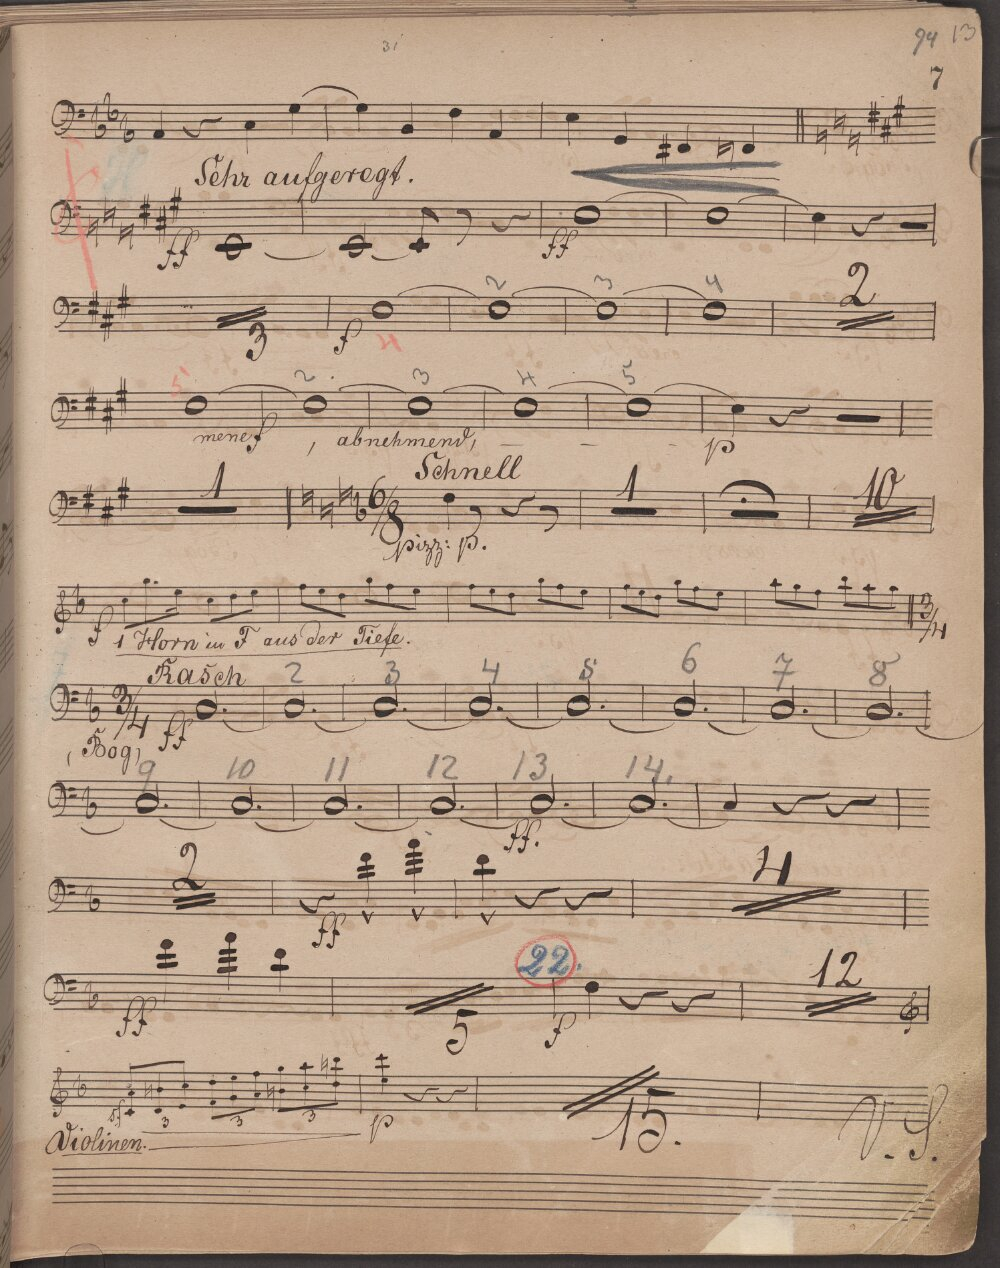 31
94 13
7
Sehr aufgeregt.
ff ff
2 3 4 2
3 f 4
5 2 3 4 5
f abnehmend, p
Schnell
1 6/8 1 10
pizz: p.
f 1 Horn in F aus der Tiefe. 3/4
Rasch 2 3 4 5 6 7 8
3/4 ff
(Bog)
9 10 11 12 13 14.
ff.
2 4
ff
22. 12
ff 5 f
sf 3 3 3 p 15. V. S.
Violinen.